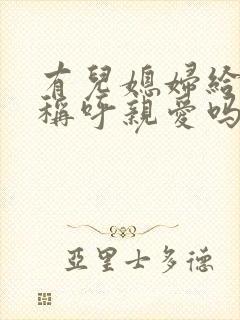 有兒媳婦給
稱呼親愛吗
亞里士多德